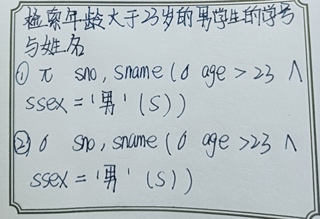 检索年龄大于23岁的男学生的学号
与姓名
① π sno, sname (σ age > 23 ∧
ssex = '男' (S))
② σ sno, sname (σ age >23 ∧
ssex = '男' (S))